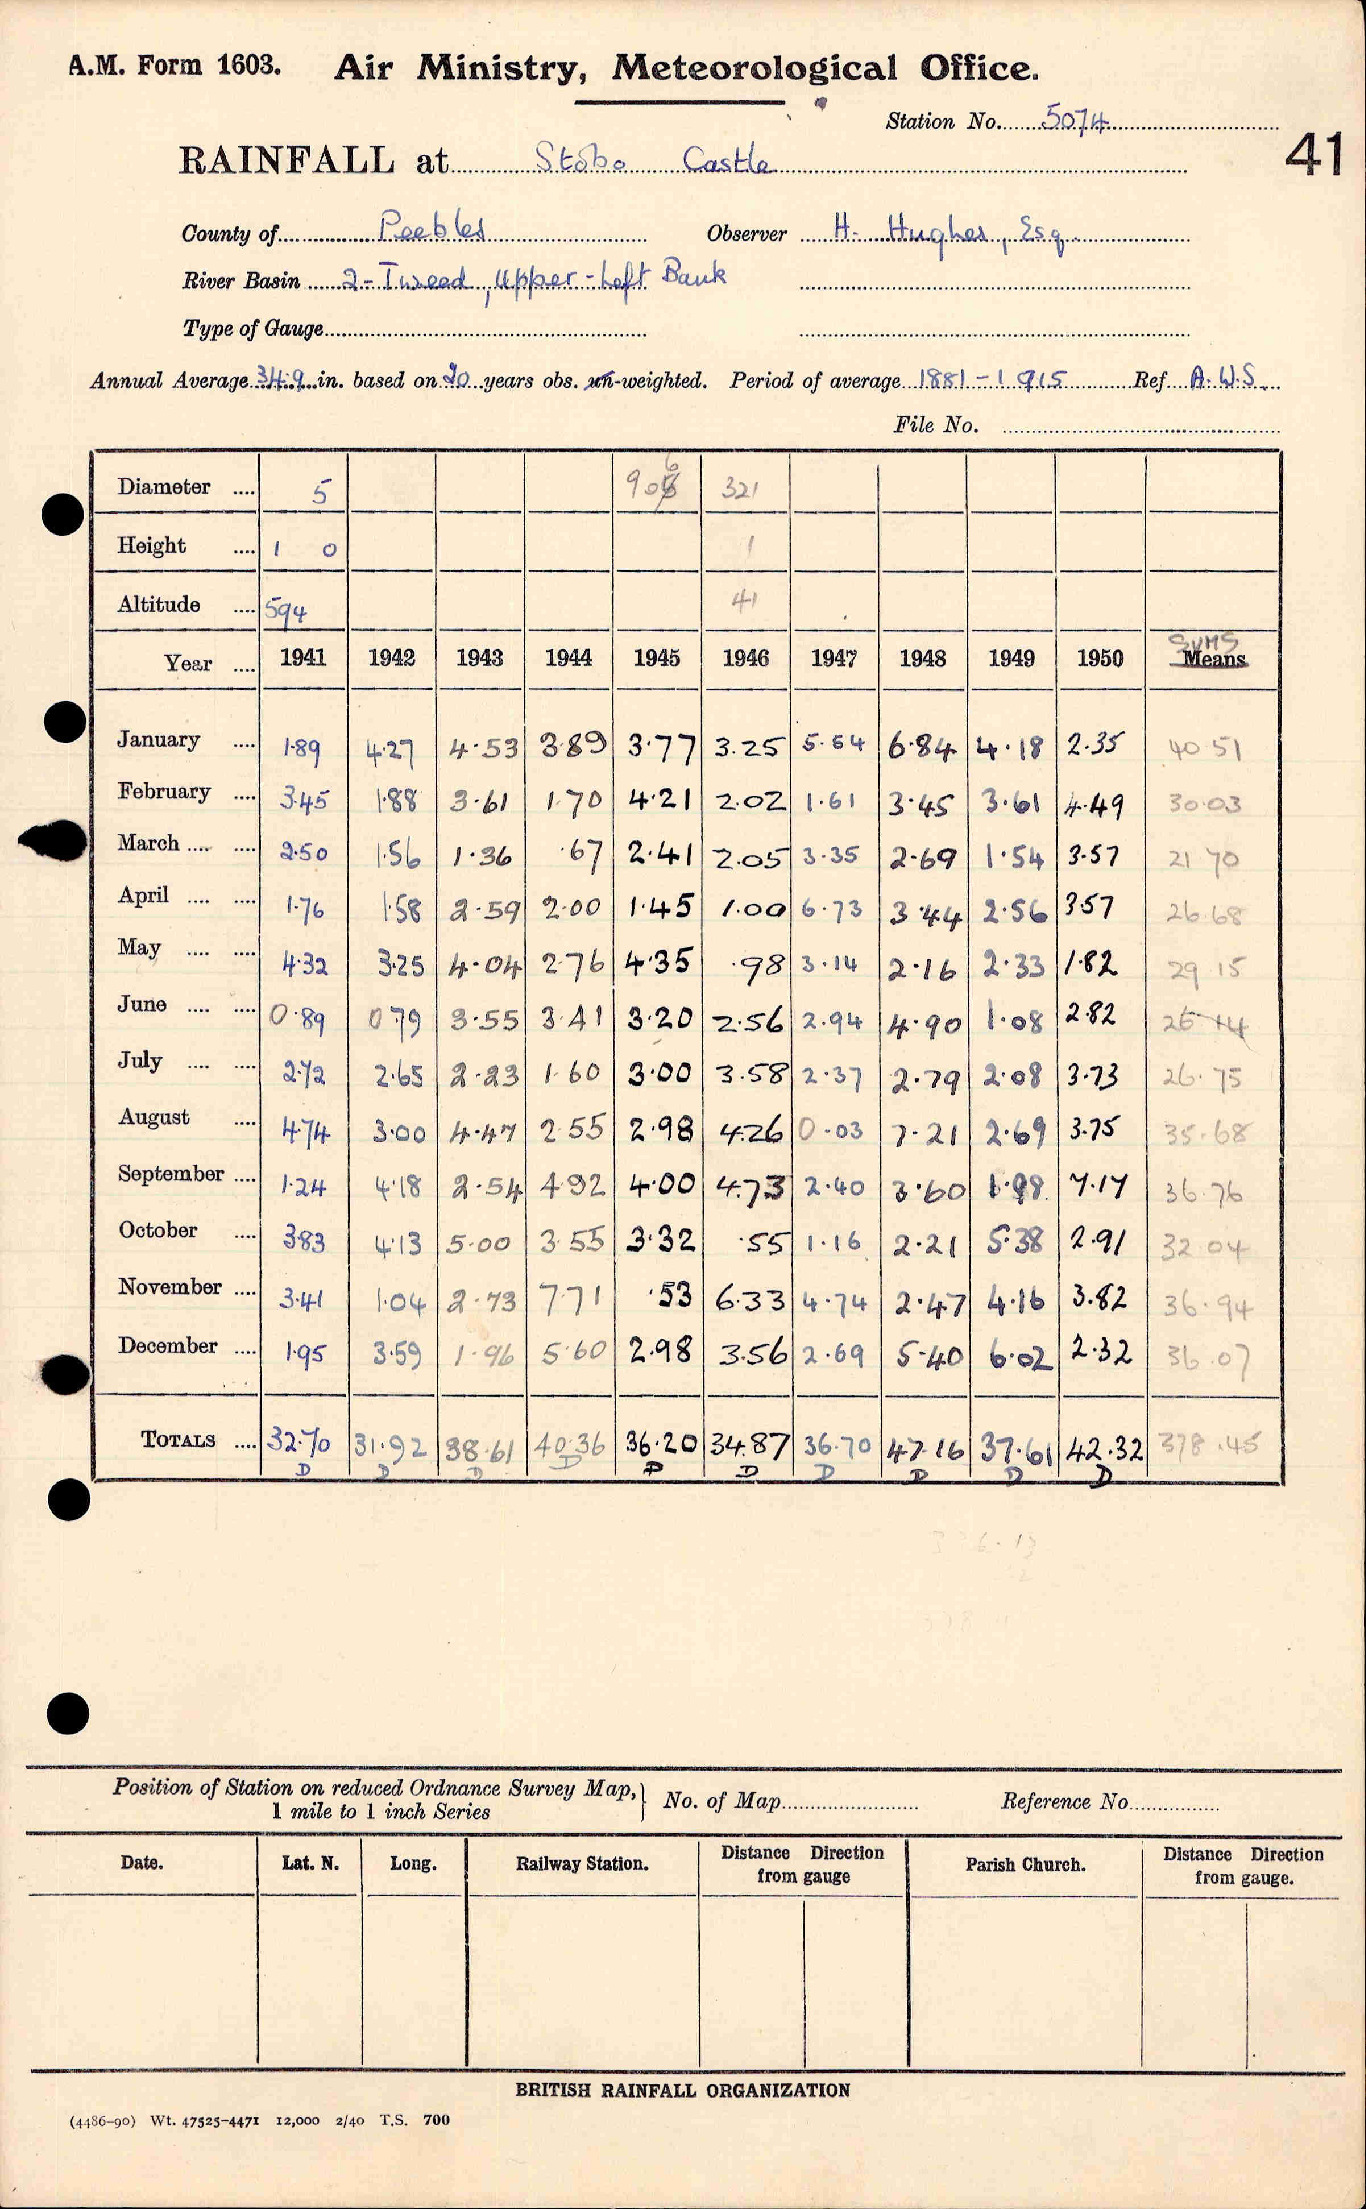 A.M. Form 1603. Air Ministry, Meteorological Office.
Station No. 5074
41
RAINFALL at Stobo Castle
County of Peebles Observer H. Hughes, Esq.
River Basin 2-Tweed, Upper-Left Bank
Type of Gauge
Annual Average 34.9 in. based on 20 years obs. un-weighted. Period of average 1881-1915 Ref A.W.S.
File No.
Diameter .... 5 906 321
Height .... 1 0 1
Altitude .... 594 41
SUMS
Year .... 1941 1942 1943 1944 1945 1946 1947 1948 1949 1950 Means
January .... 1.89 4.27 4.53 3.89 3.77 3.25 5.54 6.84 4.18 2.35 40 51
February .... 3.45 1.88 3.61 1.70 4.21 2.02 1.61 3.45 3.61 4.49 30.03
March .... .... 2.50 1.56 1.36 .67 2.41 2.05 3.35 2.69 1.54 3.57 21 70
April .... .... 1.76 1.58 2.59 2.00 1.45 1.00 6.73 3.44 2.56 3.57 26 68
May .... .... 4.32 3.25 4.04 2.76 4.35 .98 3.14 2.16 2.33 1.82 29 15
June .... .... 0.89 0.79 3.55 3.41 3.20 2.56 2.94 4.90 1.08 2.82 26 14
July .... .... 2.72 2.65 2.23 1.60 3.00 3.58 2.37 2.79 2.08 3.73 26.75
August .... 4.74 3.00 4.47 2.55 2.98 4.26 0.03 7.21 2.69 3.75 35.68
September .... 1.24 4.18 2.54 4.92 4.00 4.73 2.40 3.60 1.98 7.17 36.76
October .... 3.83 4.13 5.00 3.55 3.32 .55 1.16 2.21 5.38 2.91 32 04
November .... 3.41 1.04 2.73 7.71 .53 6.33 4.74 2.47 4.16 3.82 36.94
December .... 1.95 3.59 1.96 5.60 2.98 3.56 2.69 5.40 6.02 2.32 36.07
TOTALS .... 32.70 31.92 38.61 40.36 36.20 34.87 36.70 47.16 37.61 42.32 378.45
D D D D D D D D D D
Position of Station on reduced Ordnance Survey Map, No. of Map Reference No.
1 mile to 1 inch Series
Date. Lat. N. Long. Railway Station. Distance Direction from gauge Parish Church. Distance Direction from gauge.
BRITISH RAINFALL ORGANIZATION
(4486-90) Wt. 47525-4471 12,000 2/40 T.S. 700